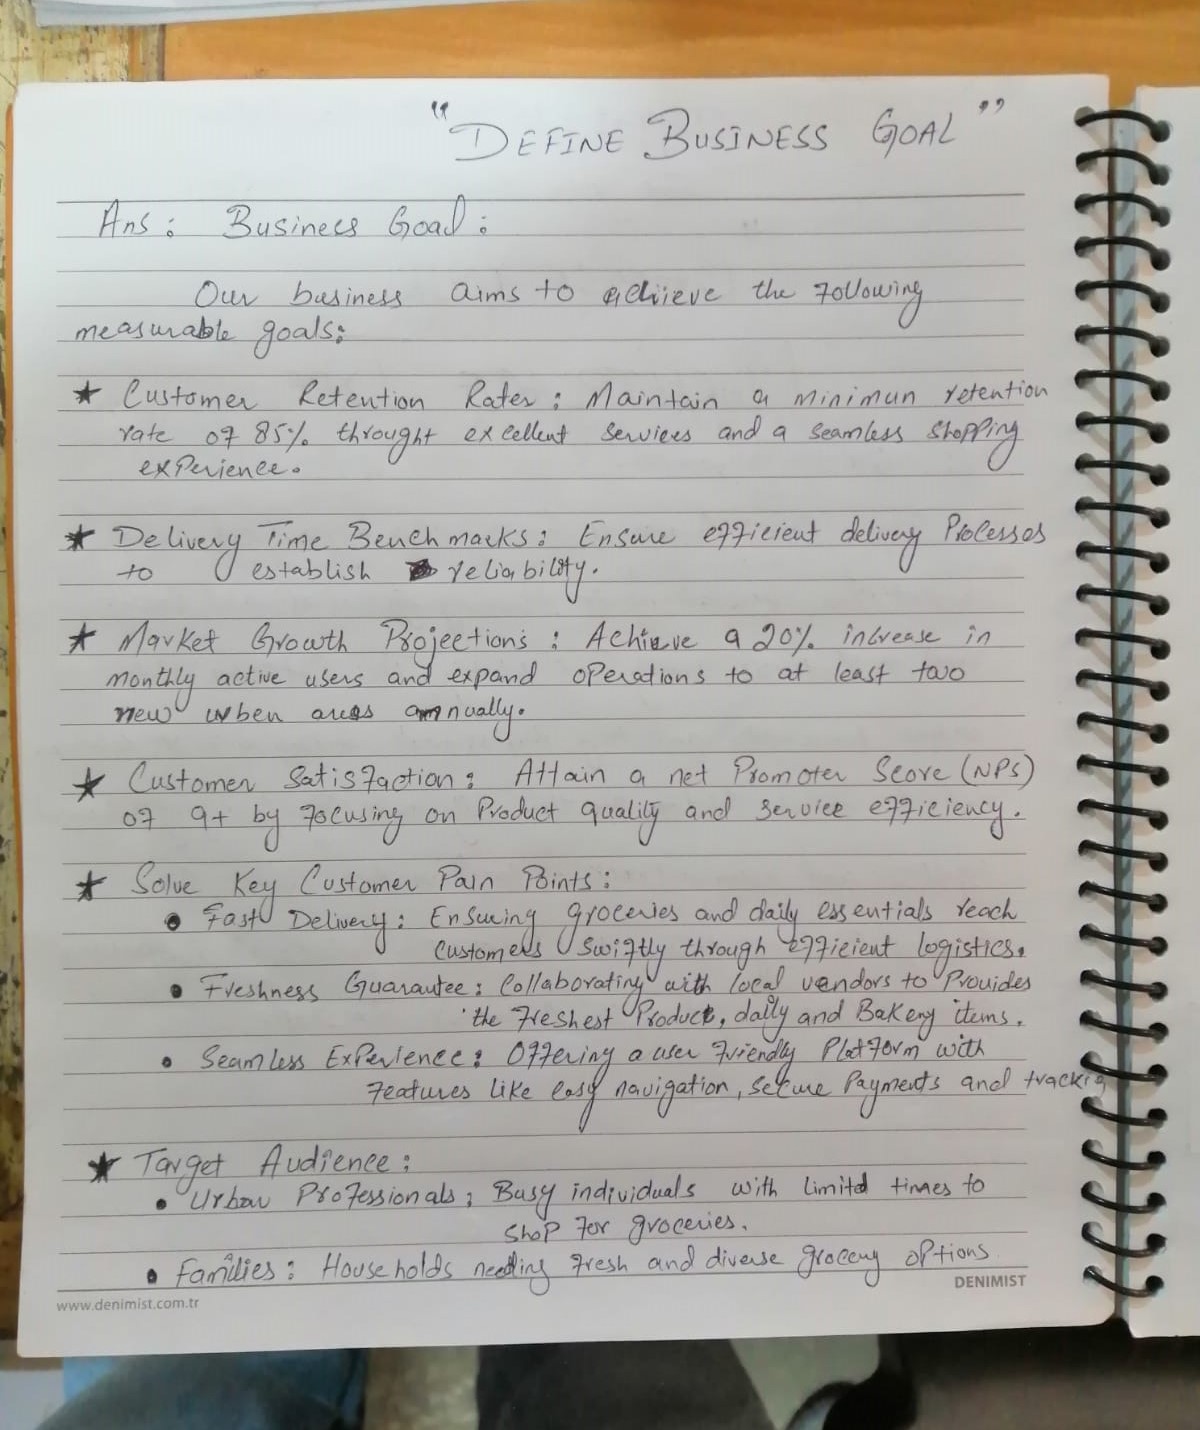 "DEFINE BUSINESS GOAL"
Ans: Business Goal:
Our business aims to achieve the following
measurable goals:
★ Customer Retention Rates: Maintain a minimun retention
rate of 85% throught excellent services and a seamless shopping
experience.
★ Delivery Time Benchmarks: Ensure efficient delivery Processes
to establish reliability.
★ Market Growth Projections: Achieve a 20% increase in
monthly active users and expand operations to at least two
new urben areas annually.
★ Customer Satisfaction: Attain a net Promoter Score (NPS)
of 9+ by focusing on Product quality and service efficiency.
★ Solve Key Customer Pain Points:
• Fast Delivery: Ensuring groceries and daily essentials reach
customers swiftly through efficient logistics.
• Freshness Guarantee: Collaborating with local vendors to Provides
the Freshest Product, daily and Bakery items.
• Seamless Experience: Offering a user friendly Platform with
features like easy navigation, secure Payments and trackig
★ Target Audience:
• Urban Professionals: Busy individuals with limitd times to
shop for groceries.
• Families: Households needing fresh and diverse grocery options
DENIMIST
www.denimist.com.tr